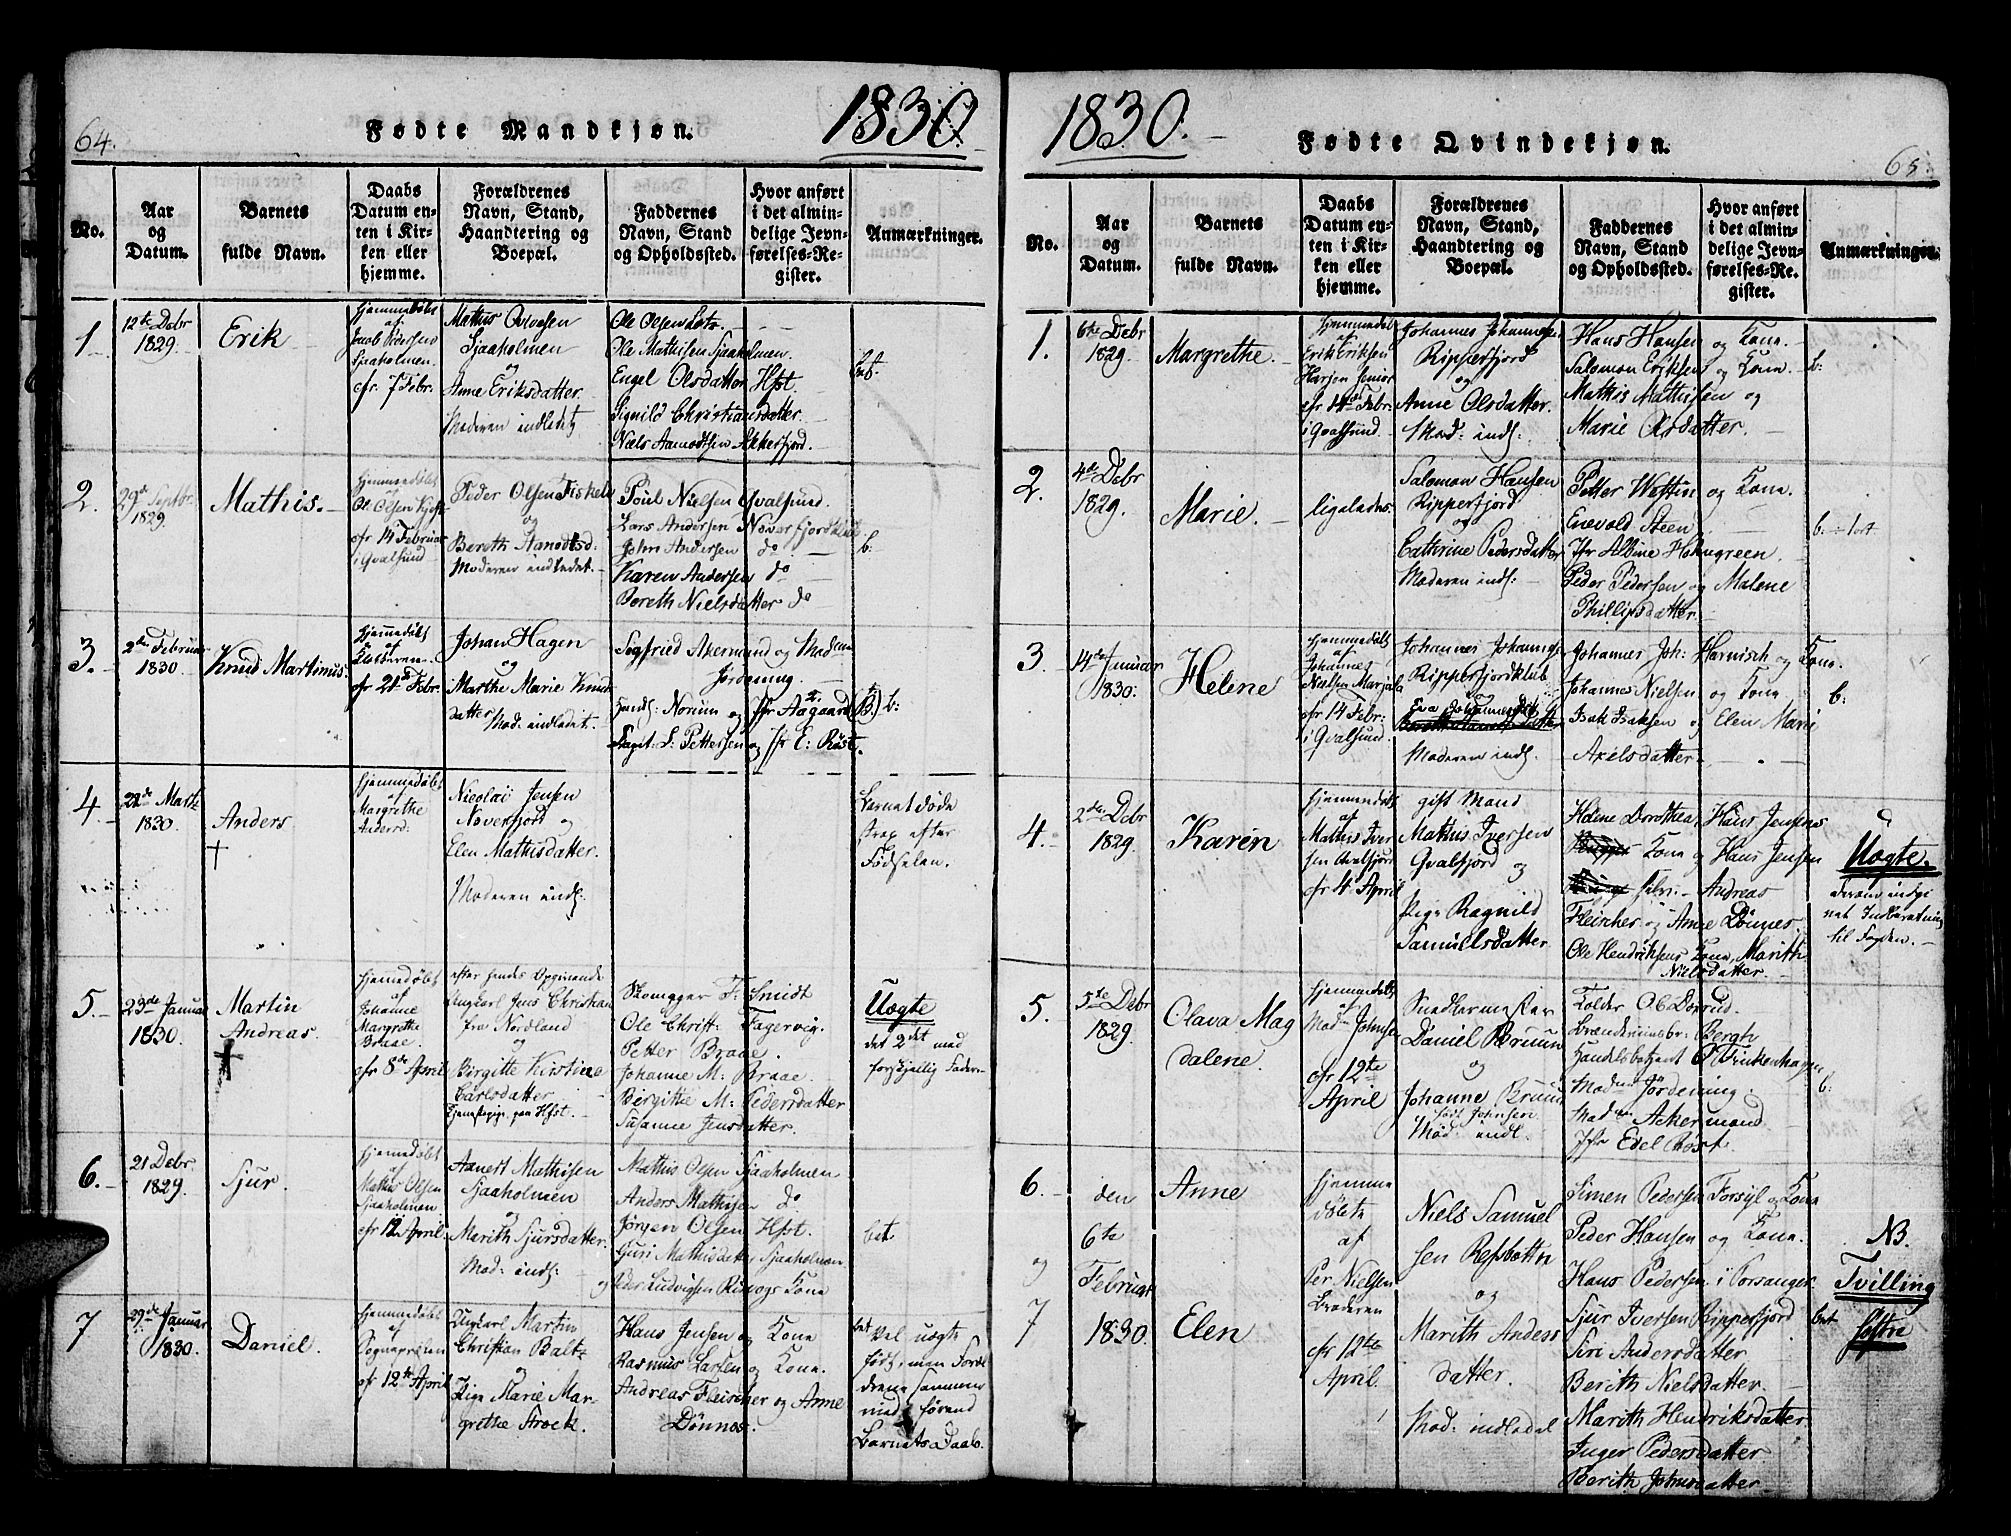 64.
Fødte Mandkjøn.
1830
No.
Aar
og
Datum.
Barnets
fulde Navn.
Daabs
Datum en-
ten i Kir-
ken eller
hjemme.
Forældrenes
Navn, Stand,
Haandtering og
Boepæl.
Faddernes
Navn, Stand
og Opholdssted.
Hvor anført
i det almin-
delige Jevn-
førelses-Re-
gister.
Anmærkninger.
1
12te Debr
1829.
Erik
hjemmedøbt
af
Pedersen
Sjaaholmen.
cfr. 7 Febr.
Mathis
Sjaaholmen
og
Anne Eriksdatter
Moderen indledet
Ole Olsen
Ole Mathisen Sjaaholmen.
Engel Olsdatter Hfst
Signild Christiansdatter
Niels Aamodtsen Akkerfjord.
2.
29de Septbr.
1829.
Mathis.
hjemmedøbt
Ol. Olsen
cfr 14 Februar
i Qvalsund
Peder Olsen
og
Bereth
Moderen indledet.
Poul Nielsen Qvalsund
Lars Andersen
John Andersen do
Karen Andersen do
Bereth Nielsdatter do
b:
3.
2den Februar
1830
Knud Martinus.
hjemmedøbt
af
cfr 21de Febr.
Johan Hagen
og
Marthe Marie Knud
datter Mod: indledet.
Sigfried Akermand og Madame
Jordening.
Norum og Jfr Aagaard
L: Pettersen og Jfr E: Røst.
(B.) b:
4
22de Marti
1830.
Anders
†
hjemmedøbt
af
Margrethe
Andersd:
Nicolai Jensen
Noverfjord og
Elen Mathisdatter.
Moderen indl:
Barnet døde
strax efter
Fødselen.
5.
23de Januar
1830.
Martin
Andreas.
†
hjemmedøbt
af
Johanne
Margrethe
Braae.
cfr 8de April
efter hendes Opgivende
Ungkarl Jens Christian
fra Nordland
og
Birgitte Kirstine
Carlsdatter
Tjenestepige paa Hfst.
F: Smidt
Ole Christ: Fagervig.
Petter Braae.
Johanne M: Braae.
Birgitte M: Pedersdatter
Susanne Jensdatter.
Uægte
det 2det med
forskjellig Fader
6.
21 Debr
1829.
Sjur.
hjemmedøbt
af
Mathis Olsen
Sjaaholmen
cfr 12 April
Mathisen
Sjaaholmen
og
Marith Sjursdatter.
Mod: indl:
Mathis Olsen Sjaaholmen
Anders Mathisen do
Jørgen Olsen Hfst.
Guri Mathisdatter Sjaaholmen
og Peder Ludvigsen Kona
7
29de Januar
1830.
Daniel.
hjemmedøbt
af
Sognepresten
cfr 12te April
Ungkarl Martin
Christian Baltz
og
Pige Marie Mar-
grethe Frock.
Hans Jensen og Kona
Rasmus Larsen og Kona.
Andreas Fleischer og Anne
Dønnes.
Vel uægte
født, men Foræl
drene sammen
viede førend
Barnets Daab.
1830.
Fødte Qvindekjøn.
65.
No.
Aar
og
Datum.
Barnets
fulde Navn.
Daabs
Datum en-
ten i Kir-
ken eller
hjemme.
Forældrenes
Navn, Stand,
Haandtering og
Boepæl.
Faddernes
Navn, Stand
og Opholdssted.
Hvor anført
i det almin-
delige Jevn-
førelses-Re-
gister.
Anmærkninger.
1.
6te Debr
1829.
Margrethe.
hjemmedøbt
af
Erik Eriksen
cfr 14de Febr:
i Qvalsund
Johannes Johannesen
Ripperfjord
og
Anne Olsdatter.
Mod: indl:
Hans Hansen og Kona.
Salomon Eriksen og Kona.
Mathis Mathisen og
Marie Olsdatter.
b:
2.
4de Debr
1829.
Marie.
ligeledes.
Salomon Hansen
Ripperfjord
og
Catherine Pedersdatter
Moderen indl:
Petter Westin og Kona.
Enevold Steen
Jfr Albine Holmgreen.
Peder Pedersen og Malene
Phillipsdatter.
3
14de Januar
1830.
Helene
hjemmedøbt
af
Johannes
Nielsen
cfr 14 Febr:
i Qvalsund.
Johannes Johannes:
Ripperfjordklub
og
Eva Johannesdtr
Moderen indl.
Johannes Joh: Harnisch og Kona.
Johannes Nielsen og Kona
Isak Isaksen og Elen Marie
Axelsdatter
b:
4.
2den Debr
1829.
Karen
hjemmedøbt
af
Mathis Iver
sen Qvalfjord
cfr 4 April
gift Mand
Mathis Iversen
Qvalfjord og
Pige Ragnild
Samuelsdatter
Helene Dorothea Hans Jensens
Kona og Hans Jensen
selv. Andreas
Fleischer og Anne Dønnes.
Ole Hendriksens Kona, Marith
Nielsdatter
Uægte.
derom indgi
vet Indberetning
til Fogden.
5.
5te Debr
1829.
Olava Mag
dalene.
hjemmedøbt
af
Mad: Johnsen
cfr 12te
April
Snedkermester
Daniel Bruun
og
Johanne Bruun
født Johnsen
Mod: indl.
Brændeviinsbr: Bergh
Handelsbetjent O Finkenhagen
Madme Jordening
Madme Ackermand
Jfr Edel Røst.
b:
6.
og
7
den
6te
Februar
1830.
Anne
Elen
hjemme
døbte
af
Per Nielsen
Broderen
cfr 12te
April.
Niels Samuel
sen Refsbottn
og
Marith Anders
datter.
Mod: indledet
Simen Pedersen Forsøl og Kona
Peder Hansen og Kona.
Hans Pedersen i Porsanger
Sjur Iversen Ripperfjord
Siri Andersdatter
Berith Nielsdatter.
Marith Hendriksdatter
Inger Pedersdatter
Berith Johnsdatter
NB.
Tvilling
Søstre